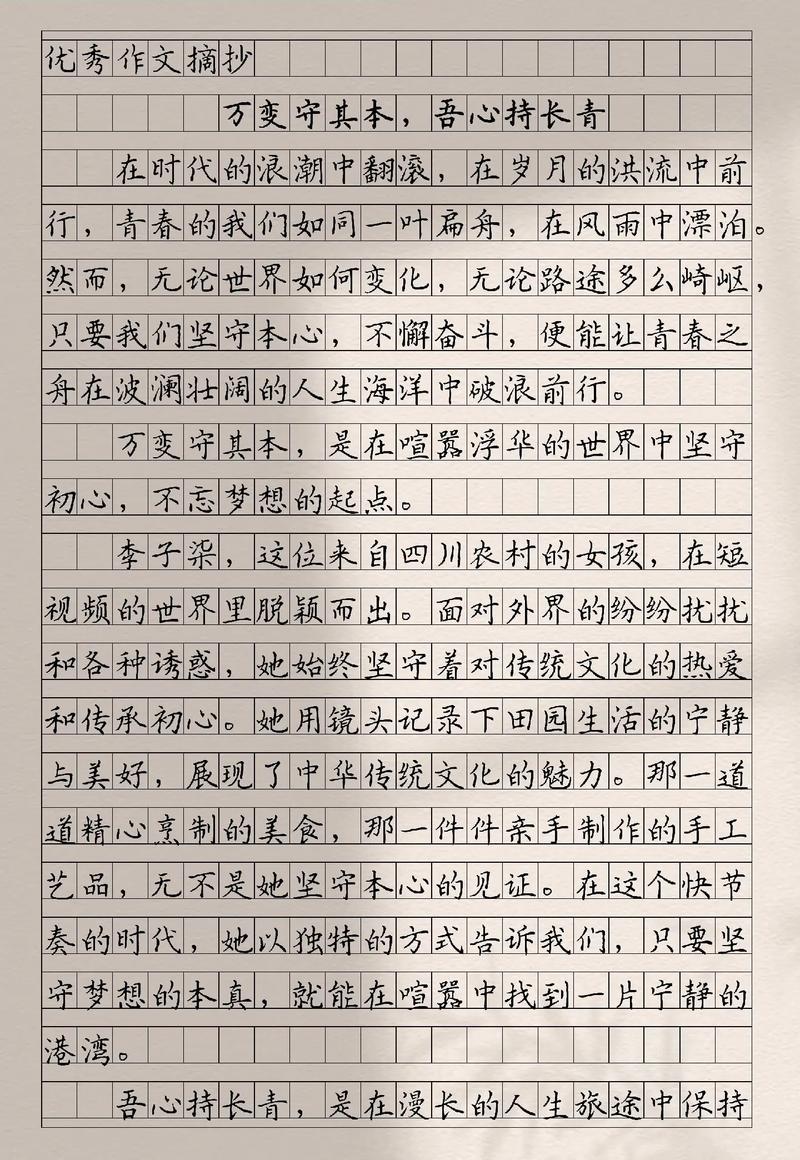 优秀作文摘抄
万变守其本，吾心持长青
在时代的浪潮中翻滚，在岁月的洪流中前
行，青春的我们如同一叶扁舟，在风雨中漂泊。
然而，无论世界如何变化，无论路途多么崎岖，
只要我们坚守本心，不懈奋斗，便能让青春之
舟在波澜壮阔的人生海洋中破浪前行。
万变守其本，是在喧嚣浮华的世界中坚守
初心，不忘梦想的起点。
李子柒，这位来自四川农村的女孩，在短
视频的世界里脱颖而出。面对外界的纷纷扰扰
和各种诱惑，她始终坚守着对传统文化的热爱
和传承初心。她用镜头记录下田园生活的宁静
与美好，展现了中华传统文化的魅力。那一道
道精心烹制的美食，那一件件亲手制作的手工
艺品，无不是她坚守本心的见证。在这个快节
奏的时代，她以独特的方式告诉我们，只要坚
守梦想的本真，就能在喧嚣中找到一片宁静的
港湾。
吾心持长青，是在漫长的人生旅途中保持